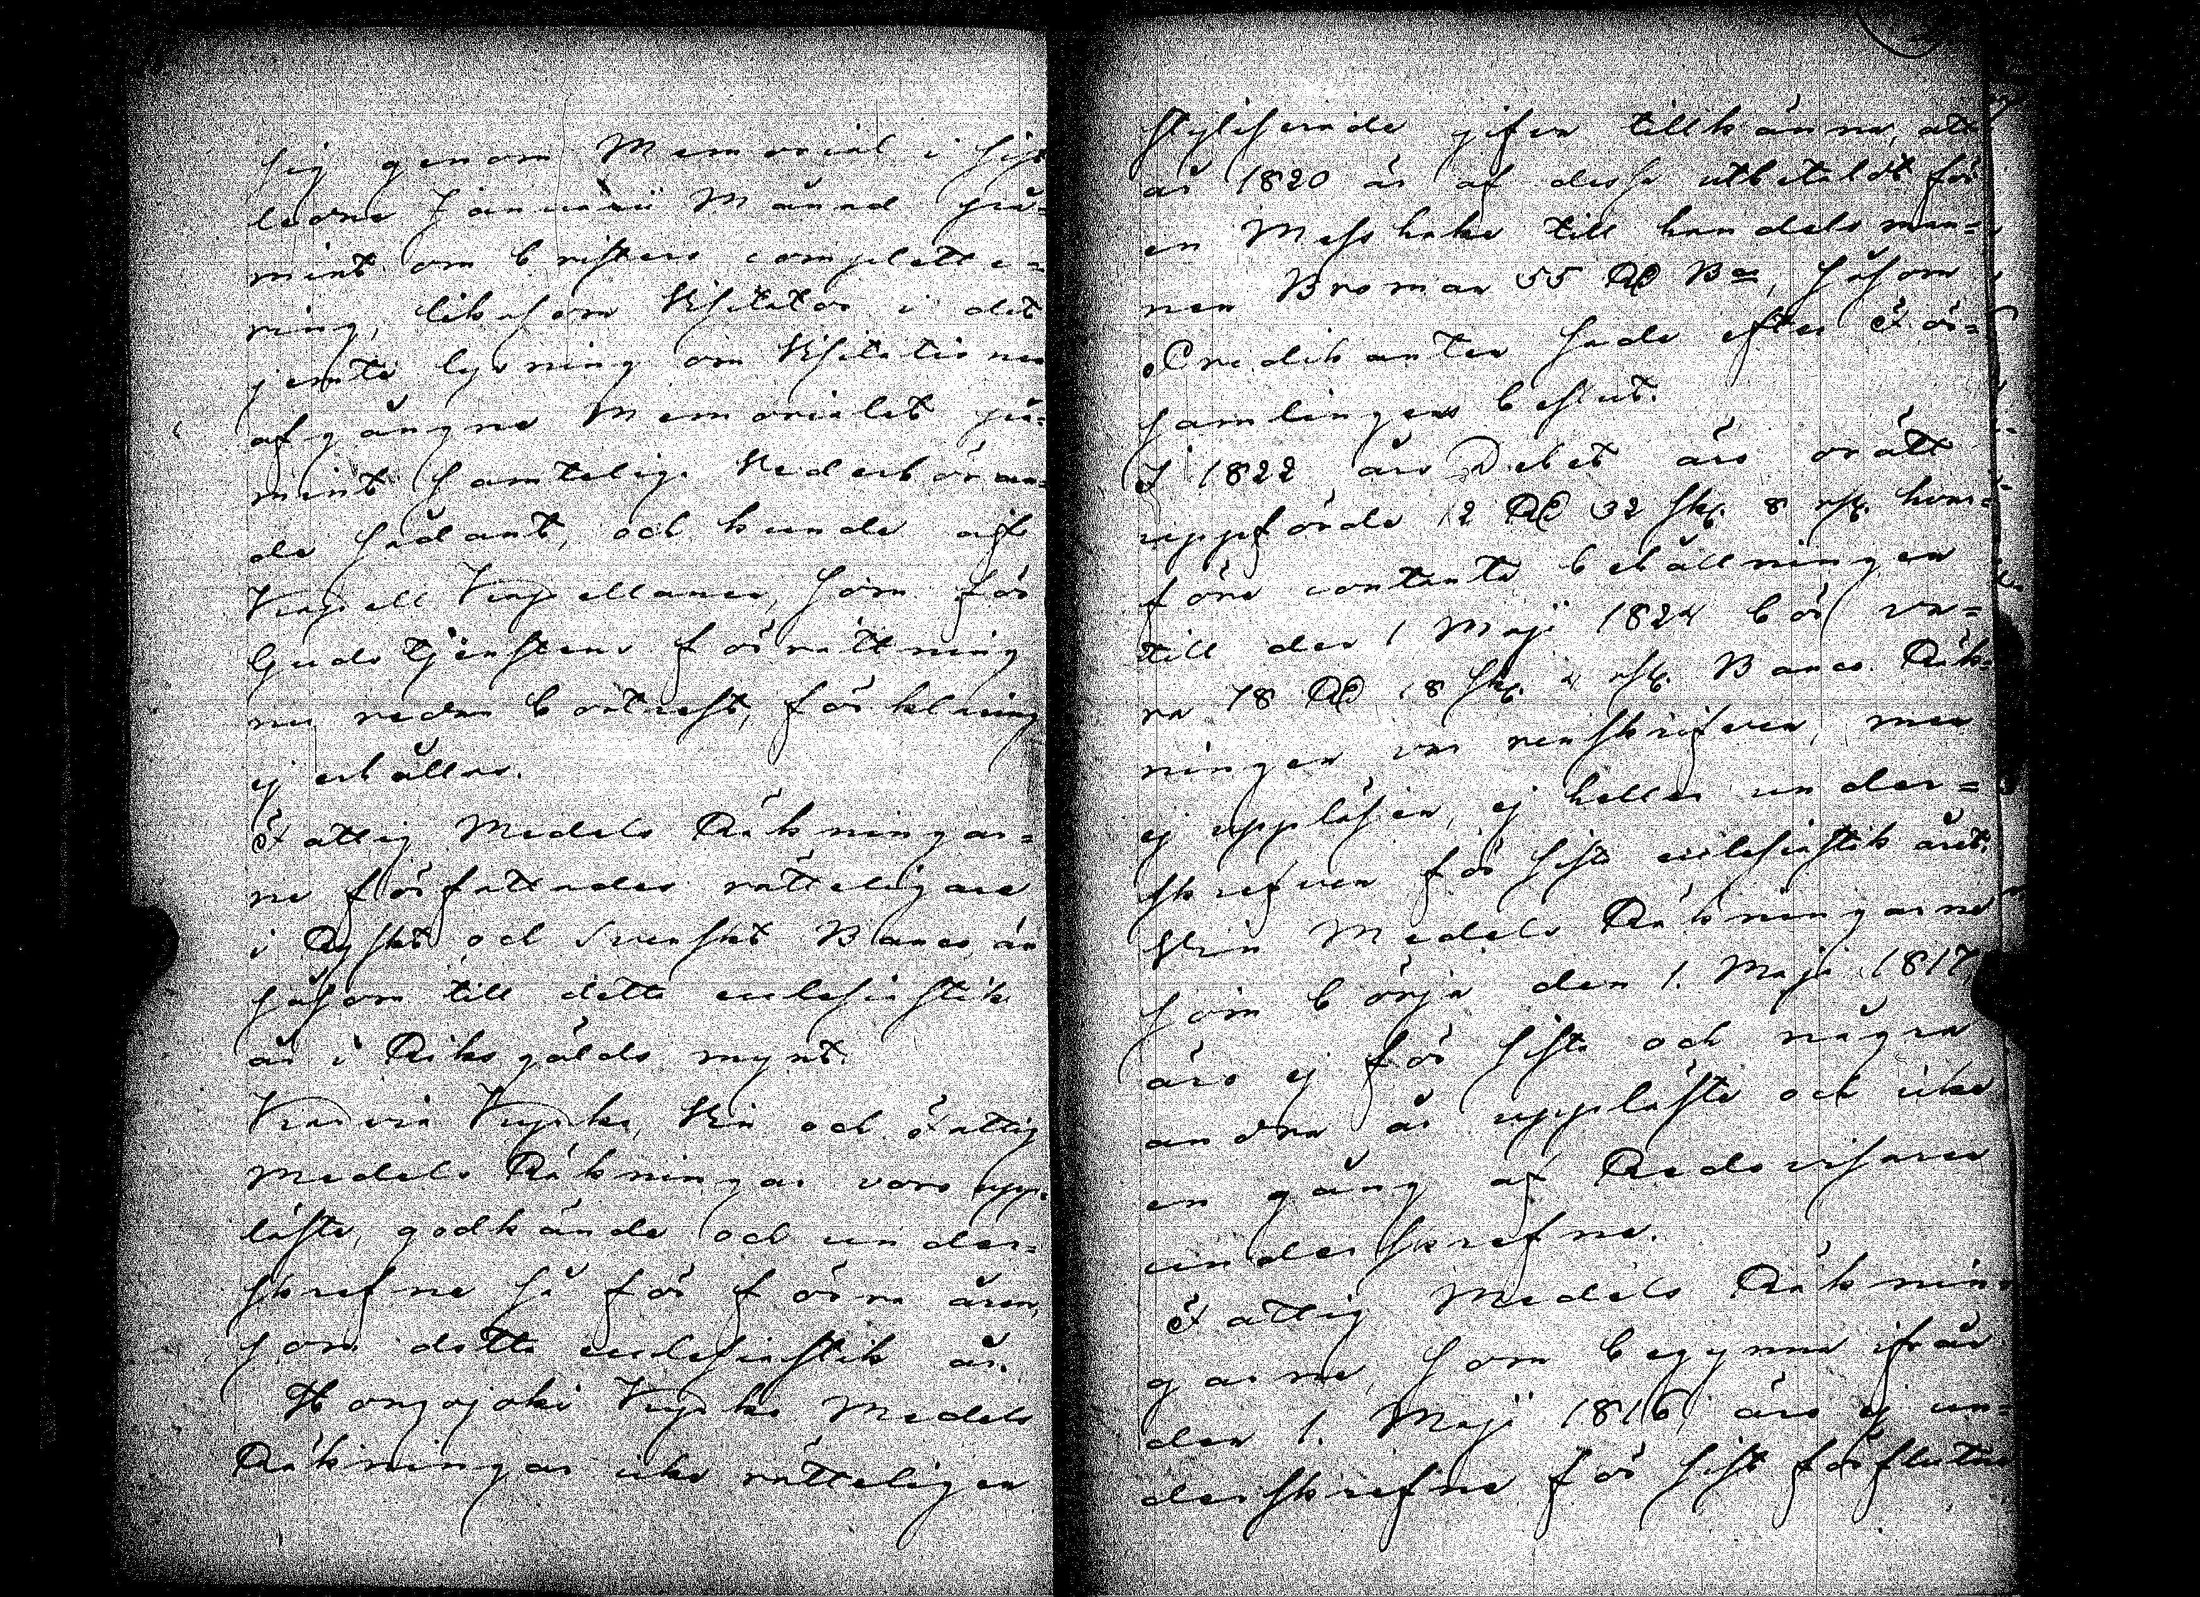 sig genom Memorial i sist
ledne Januarii Månad på-
mint om bristers complette-
ring, liksom Visitator i det
jemte lysning om Visitationen
afgångne Memorialet på-
mint samtelige Vederböran-
de sådant, och kunde af
Kapell Kapellanen, som för
Gudstjenstens förrättning
nu redan bortrest, förklaring
ej erhållas.
Fattig Medels Räkningar-
ne författades rätteligare
i Ryskt och Svenskt Banco, än
såsom till detta ecclesiastik
år i Riksgälds mynt.
Karvia Kyrko, Vin och Fattig
Medels Räkningar voro upp-
läste, godkände och under-
skrefne så för förra åren,
som detta ecclesiastik år.
Hongojoki Kyrko Medels
Räkningar icke rätteligen
styliserade gifva tillkänna, att
år 1820 är af desse utbetaldt för
en Messhake till handelsman-
nen Broman 55 RD Bco, såsom
Predikanten sade efter För-
samlingens beslut.
I 1822 års Debet äro orätt
uppförde 12 RD 32 sk. 8 rst. hvar-
före contanta behållningen
till den 1 Maji 1824 bör va-
ra 78 RD 18 sk. 2 rst. Banco. Räk-
ningen var renskrifven, men
ej uppläsen, ej heller under-
skrefven för sista ecclesiastik året.
Vin Medels Räkningarne
som börja den 1. Maji 1817
äro ej för sista och några
andra år uppläste och icke
en gång af Redovisaren
underskrefne.
Fattig Medels Räknin-
garne, som begynna ifrån
den 1. Maji 1816, äro ej un-
derskrefne för sist förflutne